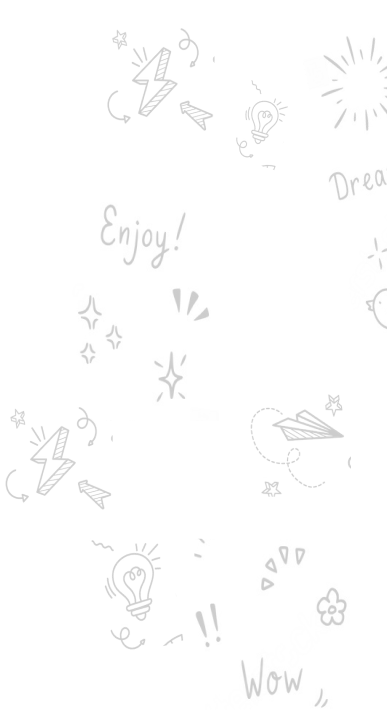 Drea
Enjoy!
!!
Wow